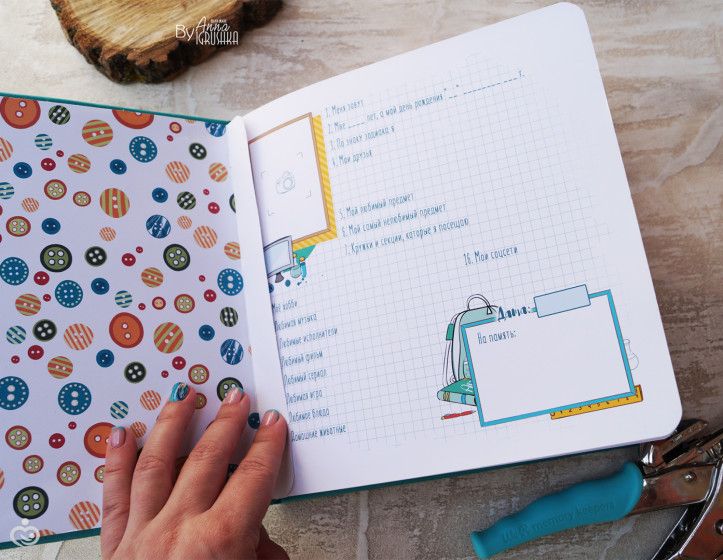 By Anna
IGRUSHKA
1. Меня зовут
2. Мне ____ лет, а мой день рождения "__" ____________ г.
3. По знаку зодиака я
4. Мои друзья
5. Мой любимый предмет
6. Мой самый нелюбимый предмет
7. Кружки и секции, которые я посещаю
16. Мои соцсети
Моё хобби
Любимая музыка
Любимые исполнители
Любимый фильм
Любимый сериал
Любимая игра
Любимое блюдо
Домашние животные
Дата:
На память:
we R memory keepers